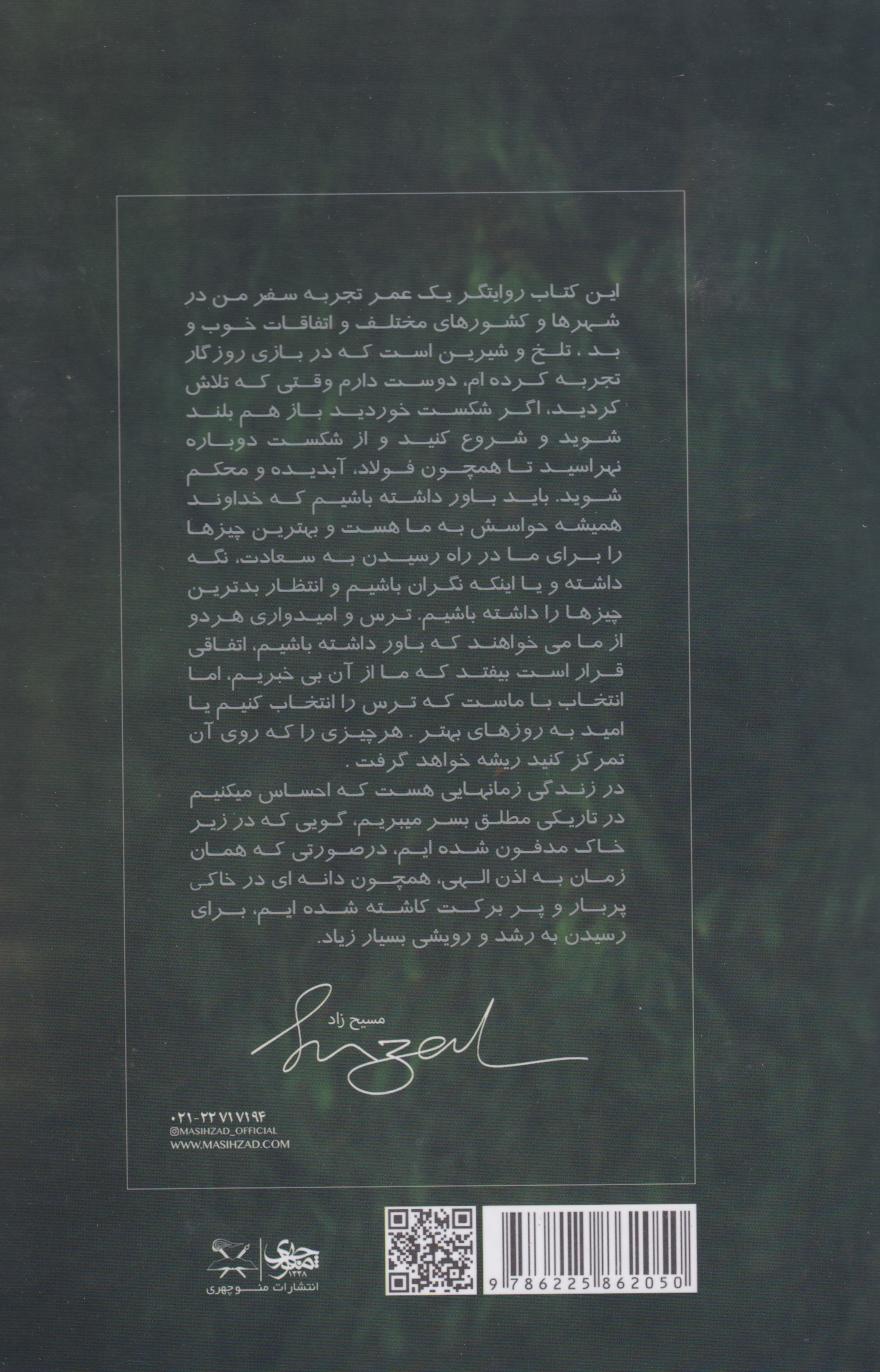 این کتاب روایتگر یک عمر تجربه سفر من در
شهرها و کشورهای مختلف و اتفاقات خوب و
بد ، تلخ و شیرین است که در بازی روزگار
تجربه کرده ام، دوست دارم وقتی که تلاش
کردید، اگر شکست خوردید باز هم بلند
شوید و شروع کنید و از شکست دوباره
نهراسید تا همچون فولاد، آبدیده و محکم
شوید. باید باور داشته باشیم که خداوند
همیشه حواسش به ما هست و بهترین چیزها
را برای ما در راه رسیدن به سعادت، نگه
داشته و یا اینکه نگران باشیم و انتظار بدترین
چیزها را داشته باشیم. ترس و امیدواری هردو
از ما می خواهند که باور داشته باشیم، اتفاقی
قرار است بیفتد که ما از آن بی خبریم، اما
انتخاب با ماست که ترس را انتخاب کنیم یا
امید به روزهای بهتر . هرچیزی را که روی آن
تمرکز کنید ریشه خواهد گرفت .
در زندگی زمانهایی هست که احساس میکنیم
در تاریکی مطلق بسر میبریم، گویی که در زیر
خاک مدفون شده ایم، درصورتی که همان
زمان به اذن الهی، همچون دانه ای در خاکی
پربار و پر برکت کاشته شده ایم، برای
رسیدن به رشد و رویشی بسیار زیاد.
مسیح زاد
۰۲۱-۲۲۷۱۷۱۹۴
@MASIHZAD_OFFICIAL
WWW.MASIHZAD.COM
منوچهری
۱۳۳۸
انتشارات منوچهری
9 786225 862050